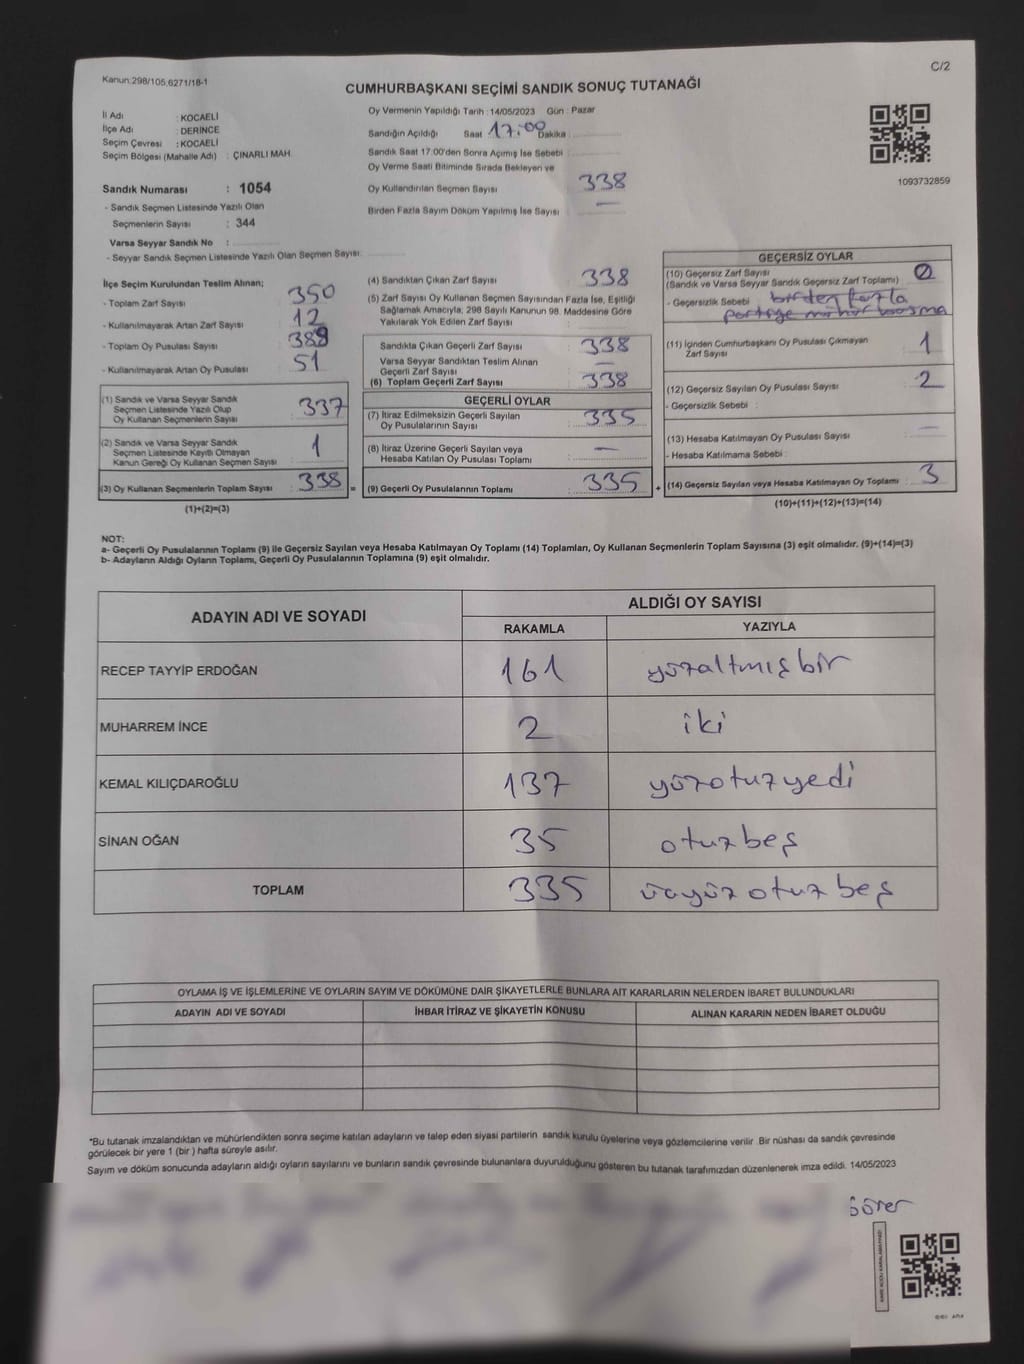 Kanun:298/105,6271/18-1
C/2
CUMHURBAŞKANI SEÇİMİ SANDIK SONUÇ TUTANAĞI
İl Adı : KOCAELİ
İlçe Adı : DERİNCE
Seçim Çevresi : KOCAELİ
Seçim Bölgesi (Mahalle Adı) : ÇINARLI MAH
Sandık Numarası : 1054
- Sandık Seçmen Listesinde Yazılı Olan
Seçmenlerin Sayısı : 344
Varsa Seyyar Sandık No :
- Seyyar Sandık Seçmen Listesinde Yazılı Olan Seçmen Sayısı:
Oy Vermenin Yapıldığı Tarih : 14/05/2023 Gün : Pazar
Sandığın Açıldığı Saat 17:00 Dakika :
Sandık Saat 17:00'den Sonra Açımış İse Sebebi :
Oy Verme Saati Bitiminde Sırada Bekleyen ve
Oy Kullandırılan Seçmen Sayısı : 338
Birden Fazla Sayım Döküm Yapılmış İse Sayısı : —
1093732859
İlçe Seçim Kurulundan Teslim Alınan;
- Toplam Zarf Sayısı : 350
- Kullanılmayarak Artan Zarf Sayısı : 12
- Toplam Oy Pusulası Sayısı : 389
- Kullanılmayarak Artan Oy Pusulası : 51
(1) Sandık ve Varsa Seyyar Sandık
Seçmen Listesinde Yazılı Olup
Oy Kullanan Seçmenlerin Sayısı : 337
(2) Sandık ve Varsa Seyyar Sandık
Seçmen Listesinde Kayıtlı Olmayan
Kanun Gereği Oy Kullanan Seçmen Sayısı : 1
(3) Oy Kullanan Seçmenlerin Toplam Sayısı : 338 =
(1)+(2)=(3)
(4) Sandıktan Çıkan Zarf Sayısı : 338
(5) Zarf Sayısı Oy Kullanan Seçmen Sayısından Fazla İse, Eşitliği
Sağlamak Amacıyla, 298 Sayılı Kanunun 98. Maddesine Göre
Yakılarak Yok Edilen Zarf Sayısı :
Sandıkta Çıkan Geçerli Zarf Sayısı : 338
Varsa Seyyar Sandıktan Teslim Alınan
Geçerli Zarf Sayısı : —
(6) Toplam Geçerli Zarf Sayısı : 338
GEÇERLİ OYLAR
(7) İtiraz Edilmeksizin Geçerli Sayılan
Oy Pusulalarının Sayısı : 335
(8) İtiraz Üzerine Geçerli Sayılan veya
Hesaba Katılan Oy Pusulası Toplamı : —
(9) Geçerli Oy Pusulalarının Toplamı : 335 +
GEÇERSİZ OYLAR
(10) Geçersiz Zarf Sayısı
(Sandık ve Varsa Seyyar Sandık Geçersiz Zarf Toplamı) : 0
- Geçersizlik Sebebi : birden fazla
partiye mühür basma
(11) İçinden Cumhurbaşkanı Oy Pusulası Çıkmayan
Zarf Sayısı : 1
(12) Geçersiz Sayılan Oy Pusulası Sayısı : 2
- Geçersizlik Sebebi :
(13) Hesaba Katılmayan Oy Pusulası Sayısı : —
- Hesaba Katılmama Sebebi :
(14) Geçersiz Sayılan veya Hesaba Katılmayan Oy Toplamı : 3
(10)+(11)+(12)+(13)=(14)
NOT:
a- Geçerli Oy Pusulalarının Toplamı (9) ile Geçersiz Sayılan veya Hesaba Katılmayan Oy Toplamı (14) Toplamları, Oy Kullanan Seçmenlerin Toplam Sayısına (3) eşit olmalıdır. (9)+(14)=(3)
b- Adayların Aldığı Oyların Toplamı, Geçerli Oy Pusulalarının Toplamına (9) eşit olmalıdır.
ADAYIN ADI VE SOYADI
ALDIĞI OY SAYISI
RAKAMLA YAZIYLA
RECEP TAYYİP ERDOĞAN 161 yüzaltmışbir
MUHARREM İNCE 2 iki
KEMAL KILIÇDAROĞLU 137 yüzotuzyedi
SİNAN OĞAN 35 otuzbeş
TOPLAM 335 üçyüzotuzbeş
OYLAMA İŞ VE İŞLEMLERİNE VE OYLARIN SAYIM VE DÖKÜMÜNE DAİR ŞİKAYETLERLE BUNLARA AİT KARARLARIN NELERDEN İBARET BULUNDUKLARI
ADAYIN ADI VE SOYADI İHBAR İTİRAZ VE ŞİKAYETİN KONUSU ALINAN KARARIN NEDEN İBARET OLDUĞU
*Bu tutanak imzalandıktan ve mühürlendikten sonra seçime katılan adayların ve talep eden siyasi partilerin sandık kurulu üyelerine veya gözlemcilerine verilir. Bir nüshası da sandık çevresinde
görülecek bir yere 1 (bir) hafta süreyle asılır.
Sayım ve döküm sonucunda adayların aldığı oyların sayılarını ve bunların sandık çevresinde bulunanlara duyurulduğunu gösteren bu tutanak tarafımızdan düzenlenerek imza edildi. 14/05/2023